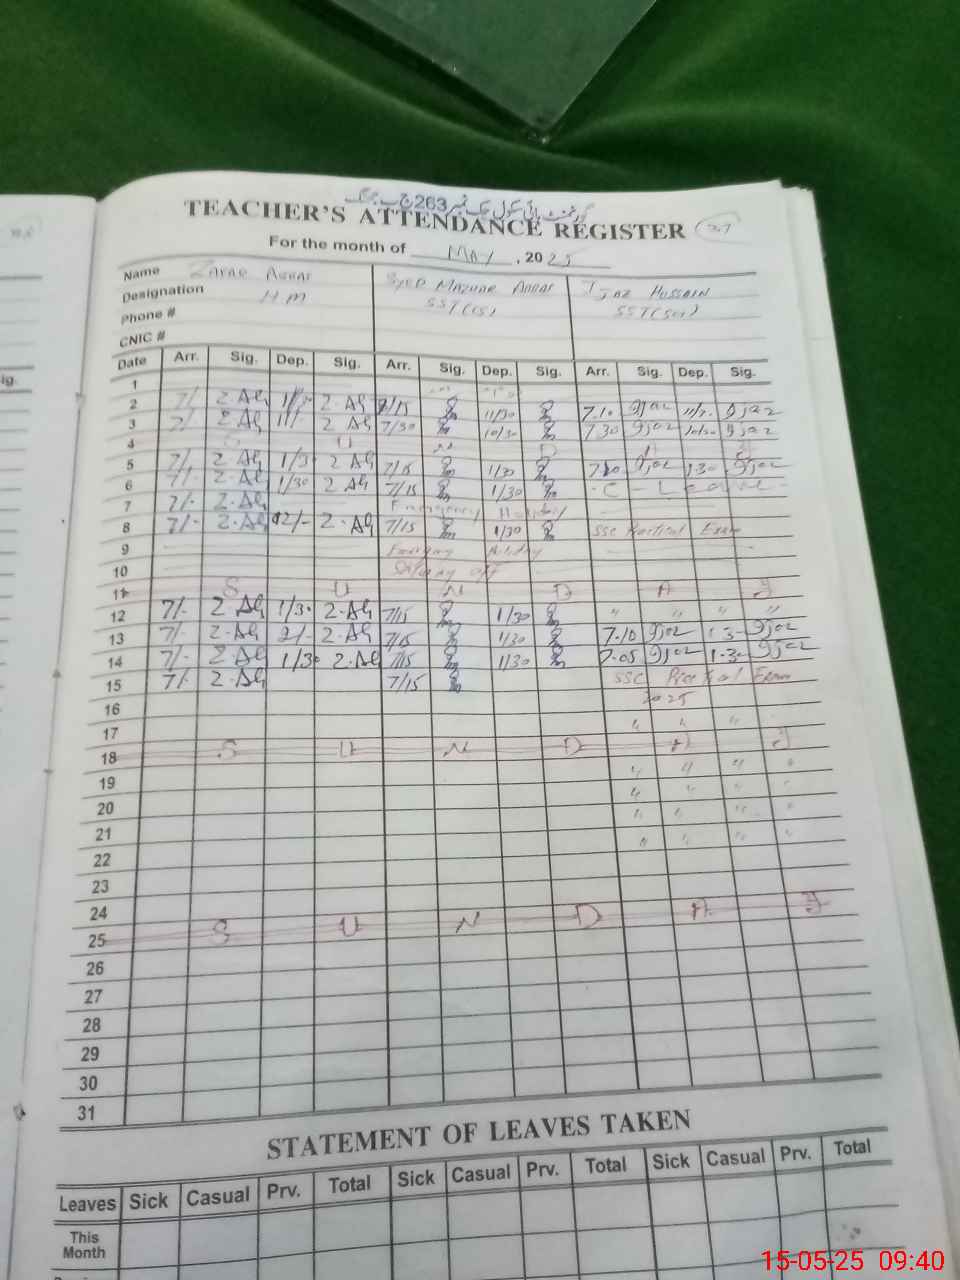 گورنمنٹ ہائی سکول چک نمبر 263 ج ب جھنگ
TEACHER'S ATTENDANCE REGISTER
For the month of MAY, 2025
Name
Designation H.M SST(CS) SST(Sci)
Phone #
CNIC #
Date Arr. Sig. Dep. Sig. Arr. Sig. Dep. Sig. Arr. Sig. Dep. Sig.
1
2 7/- Z.Ali 1/30 Z.Ali 7/15 11/30 7.10 Ijaz Ijaz
3 7/- Z.Ali 11/- Z.Ali 7/30 10/30 7.30 Ijaz 10/30 Ijaz
4 S U N D A Y
5 7/- Z.Ali 1/30 Z.Ali 7/15 1/30 7.10 Ijaz 1.30 Ijaz
6 7/- Z.Ali 1/30 Z.Ali 7/15 1/30 C-Leave
7 7/- Z.Ali Emergency Holiday
8 7/- Z.Ali 12/- Z.Ali 7/15 1/30 SSC Practical Exam
9 Emergency Holiday
10 off
11 S U N D A Y
12 7/- Z.Ali 1/30 Z.Ali 7/15 1/30 " " " "
13 7/- Z.Ali 2/- Z.Ali 7/15 1/30 7.10 Ijaz 1.30 Ijaz
14 7/- Z.Ali 1/30 Z.Ali 7/15 1/30 7.05 Ijaz 1.30 Ijaz
15 7/- Z.Ali 7/15 SSC Practical Exam
16 2025
17 " " "
18 S U N D A Y
19 " " " "
20 " " " "
21 " " " "
22 " " " "
23
24
25 S U N D A Y
26
27
28
29
30
31
STATEMENT OF LEAVES TAKEN
Leaves Sick Casual Prv. Total Sick Casual Prv. Total Sick Casual Prv. Total
This
Month
15-05-25 09:40